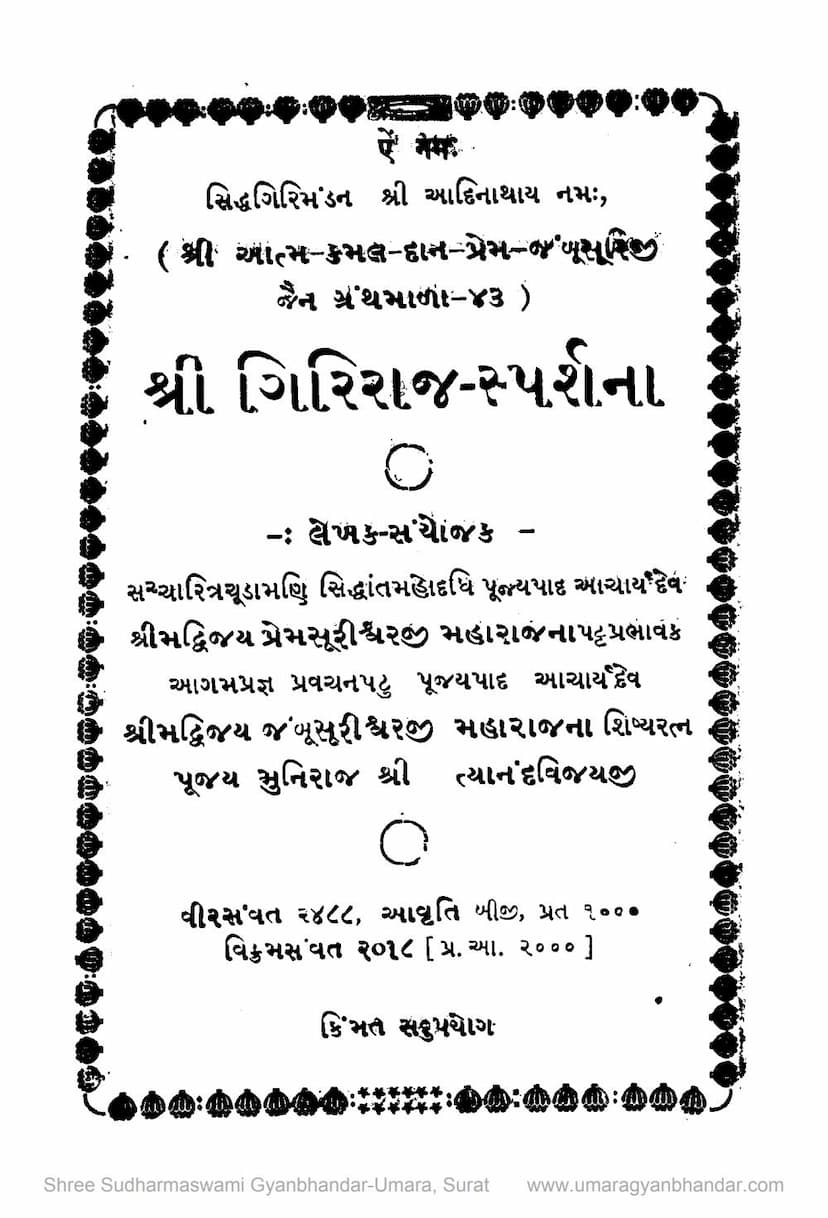 ऐं नमः
સિદ્ધગિરિમંડન શ્રી આદિનાથાય નમઃ,
( શ્રી આત્મ-કમલ-દાન-પ્રેમ-જંબૂસૂરિજી
જૈન ગ્રંથમાળા-૪૩ )
શ્રી ગિરિરાજ-સ્પર્શના
-: લેખક-સંયોજક -
સચ્ચારિત્રચૂડામણિ સિદ્ધાંતમહોદધિ પૂજ્યપાદ આચાર્યદેવ
શ્રીમદ્વિજય પ્રેમસૂરીશ્વરજી મહારાજના પટ્ટપ્રભાવક
આગમપ્રજ્ઞ પ્રવચનપટુ પૂજયપાદ આચાર્યદેવ
શ્રીમદ્વિજય જંબૂસૂરીશ્વરજી મહારાજના શિષ્યરત્ન
પૂજય મુનિરાજ શ્રી ત્યાનંદવિજયજી
વીરસંવત ૨૪૮૮, આવૃતિ બીજી, પ્રત ૧૦૦૦
વિક્રમસંવત ૨૦૧૮ [ પ્ર. આ. ૨૦૦૦ ]
કિંમત સદુપયોગ
Shree Sudharmaswami Gyanbhandar-Umara, Surat www.umaragyanbhandar.com